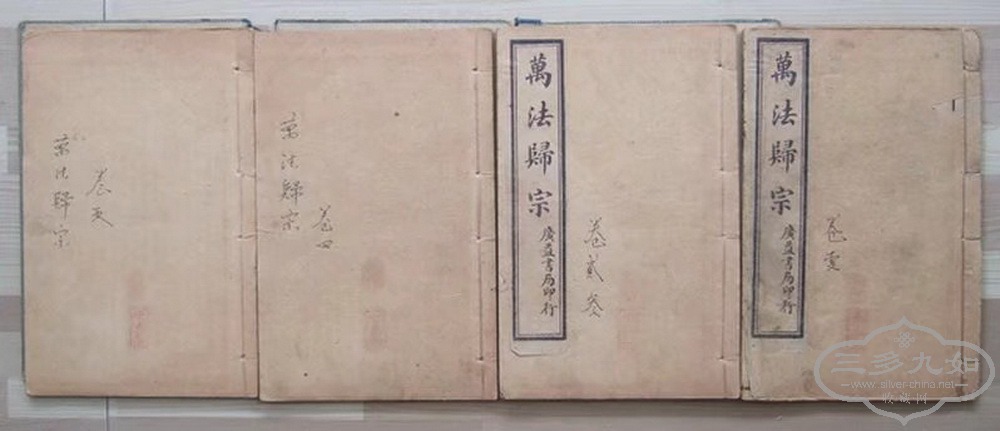 萬法歸宗 廣益書局印行
卷壹
萬法歸宗 廣益書局印行
卷貳叁
萬法歸宗
卷四
卷
萬法歸宗
三多九如
www.silver-china.net
收藏网